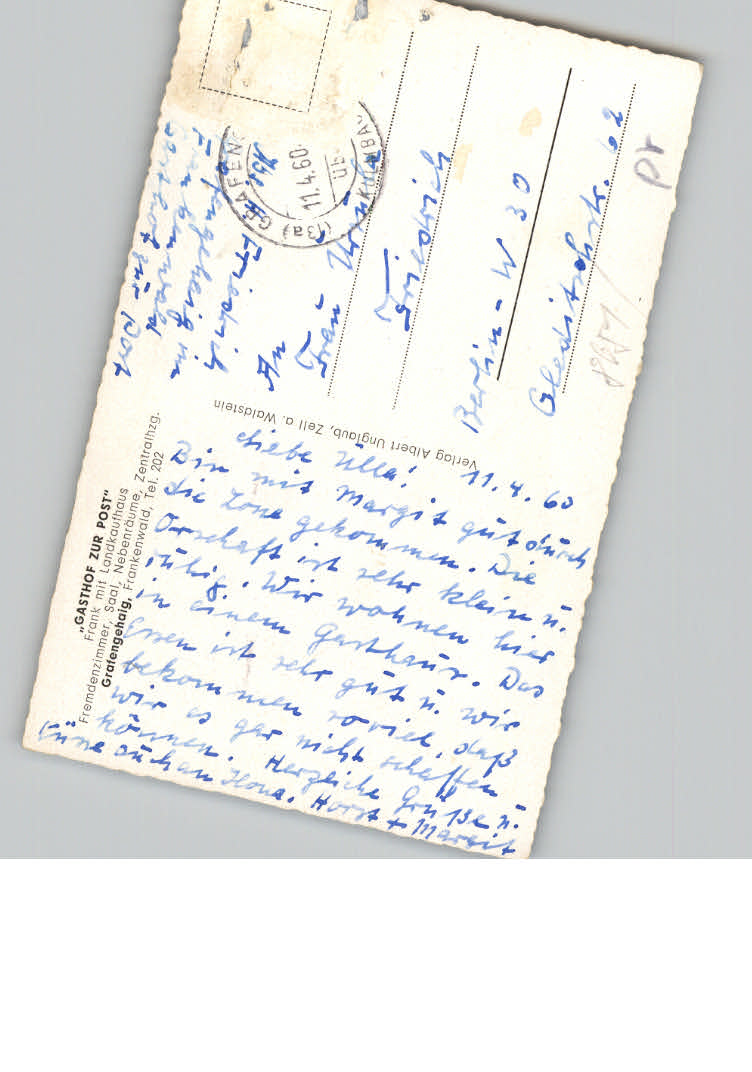 „GASTHOF ZUR POST"
Frank mit Landkaufhaus
Fremdenzimmer, Saal, Nebenräume, Zentralhzg.
Grafengehaig, Frankenwald, Tel. 202
11. 4. 60
Liebe Ulla!
Bin mit Margit gut durch
die Zone gekommen. Die
Orschaft ist sehr klein u.
ruhig. Wir wohnen hier
in einem Gasthaus. Das
Essen ist sehr gut u. wir
bekommen soviel, daß
wir es gar nicht schaffen
können. Herzliche Grüße u.
Küsse auch an Ilona. Horst + Margit
Verlag Albert Unglaub, Zell a. Waldstein
Friedrich
Grafengehaig im
Frankenwald
Gasthof zur Post
(13a) GRAFENG
11.4.60
üb.
KULMBAC
An
Frau
Friedrich
Berlin-W 30
Gleditschstr. 62